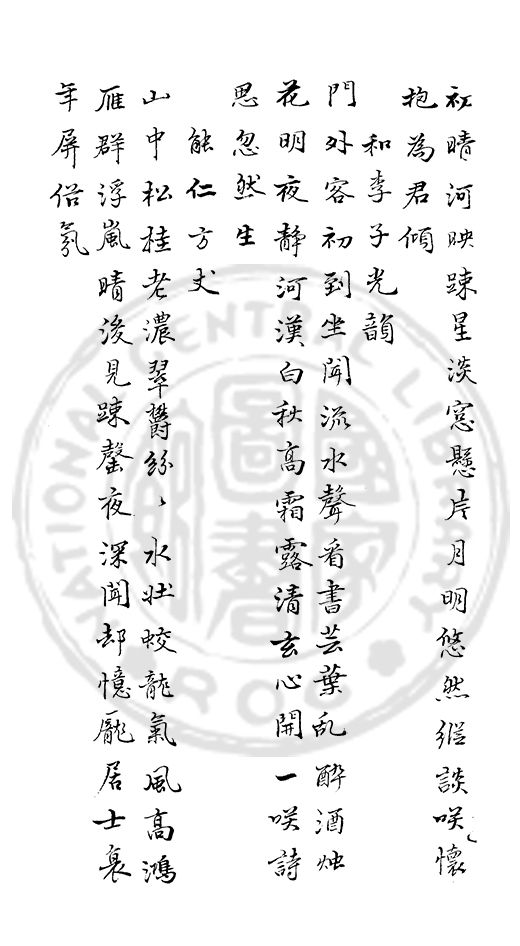 初晴河映踈星淡窓懸片月明悠然縱談咲懷
抱為君傾
和李子光韻
門外客初到坐聞流水聲看書芸葉乱酔酒烛
花明夜靜河漢白秋高霜露清玄心開一咲詩
思忽然生
能仁方丈
山中松桂老濃翠欝紛〻水壯蛟龍氣風高鴻
雁群浮嵐晴後見踈磬夜深聞却憶龐居士衰
年屏俗氛
NATIONAL CENTRAL LIBRARY